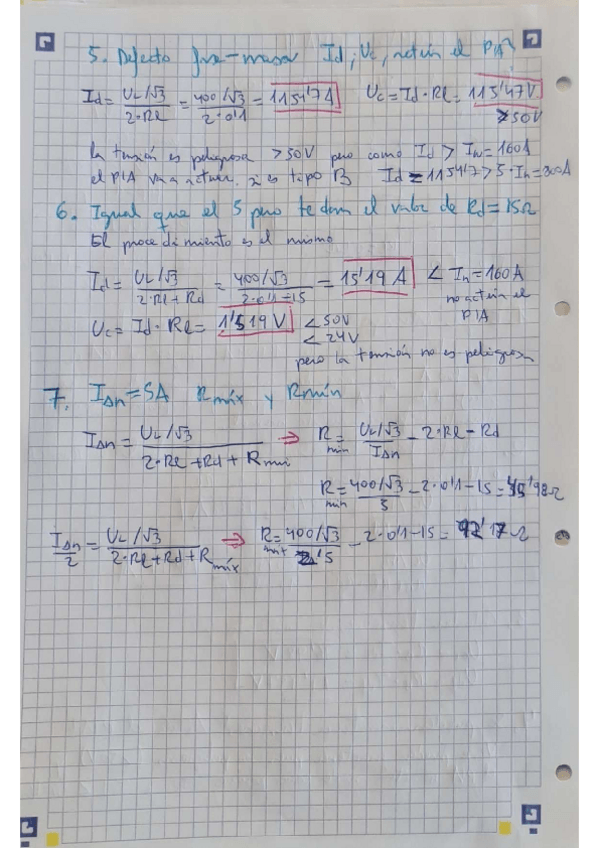 5. Defecto fase-masa Id, Uc, actúa el PIA?
Id = UL/√3 / 2·Rl = 400/√3 / 2·0'1 = 1154'7A Uc = Id·Rl = 115'47V
>50V
la tensión es peligrosa >50V pero como Id > In = 160A
el PIA va a actuar. si es tipo B Id = 1154'7 > 5·In = 800A
6. Igual que el 5 pero te dan el valor de Rd = 15Ω
El procedimiento es el mismo
Id = UL/√3 / 2·Rl+Rd = 400/√3 / 2·0'1-15 = 15'19 A < In = 160A
no actúa el
PIA
Uc = Id·Rl = 1'519 V < 50V
< 24V
pero la tensión no es peligrosa
7. IΔn = 5A Rmáx y Rmín
IΔn = UL/√3 / 2·Rl+Rd+Rmin ⇒ Rmin = UL/√3 / IΔn - 2·Rl - Rd
Rmin = 400/√3 / 5 - 2·0'1-15 = '98Ω
IΔn/2 = UL/√3 / 2·Rl+Rd+Rmáx ⇒ Rmáx = 400/√3 / 2'5 - 2·0'1-15 = '17Ω